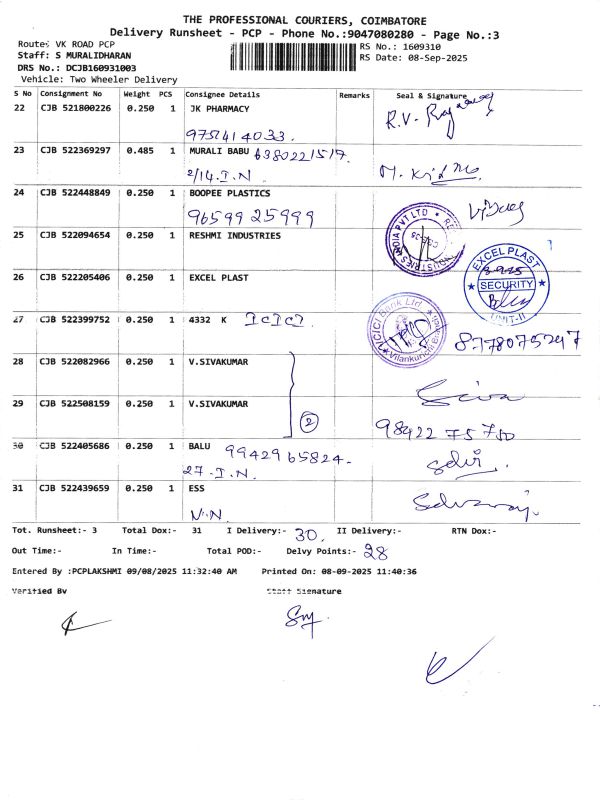 THE PROFESSIONAL COURIERS, COIMBATORE
Delivery Runsheet - PCP - Phone No.:9047080280 - Page No.:3
Route: VK ROAD PCP
RS No.: 1609310
Staff: S MURALIDHARAN
RS Date: 08-Sep-2025
DRS No.: DCJB160931003
Vehicle: Two Wheeler Delivery
S No Consignment No Weight PCS Consignee Details Remarks Seal & Signature
22 CJB 521800226 0.250 1 JK PHARMACY
R.V.
9751414033.
23 CJB 522369297 0.485 1 MURALI BABU 6380221517.
2/14.I.N
24 CJB 522448849 0.250 1 BOOPEE PLASTICS
96599 25999
25 CJB 522094654 0.250 1 RESHMI INDUSTRIES
INDUSTRIES INDIA PVT LTD
26 CJB 522205406 0.250 1 EXCEL PLAST
EXCEL PLAST
SECURITY
UNIT-II
27 CJB 522399752 0.250 1 4332 K ICICI.
ICICI Bank Ltd.
Vilankurichi
8778075247
28 CJB 522082966 0.250 1 V.SIVAKUMAR
Siva
29 CJB 522508159 0.250 1 V.SIVAKUMAR
2
98422 75750
30 CJB 522405686 0.250 1 BALU 9942965824.
27.I.N.
Selvi.
31 CJB 522439659 0.250 1 ESS
V.N
Selvaraj.
Tot. Runsheet:- 3 Total Dox:- 31 I Delivery:- 30. II Delivery:- RTN Dox:-
Out Time:- In Time:- Total POD:- Delvy Points:- 28
Entered By :PCPLAKSHMI 09/08/2025 11:32:40 AM Printed On: 08-09-2025 11:40:36
Verified By Staff Signature